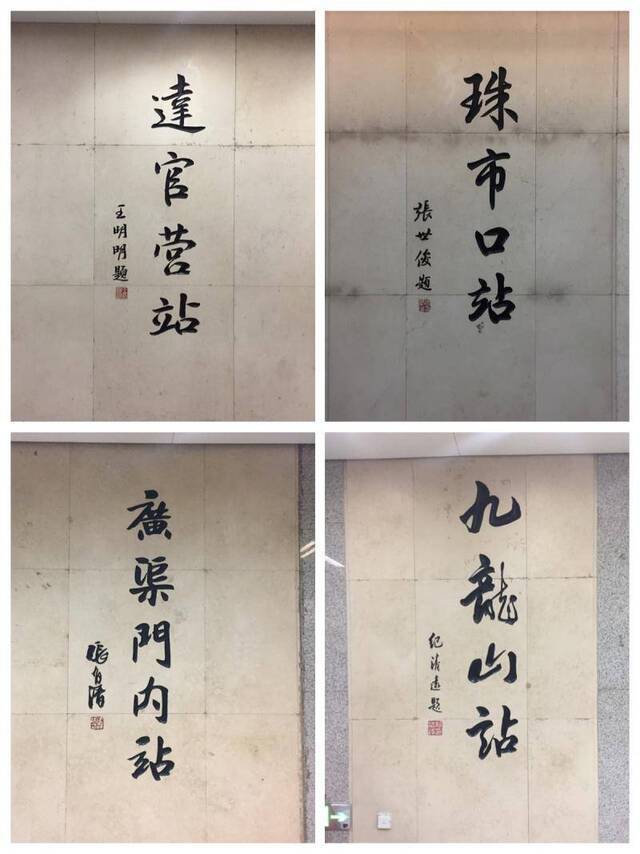 達官营站
王明明題
珠市口站
張世俊題
廣渠門内站
九龍山站
紀清遠題